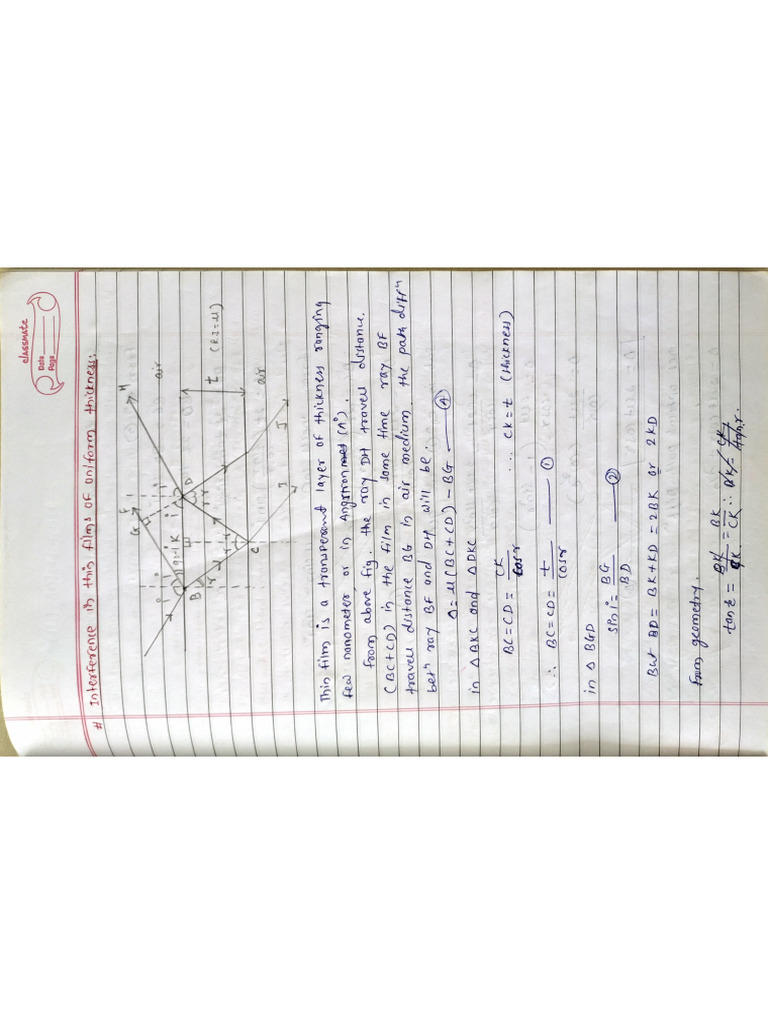 classmate
Date
Page
# Interference in thin films of uniform thickness:
H
F
G
air
i
i
i
90-i
K
i
D
B
r
r
r
r
t
(R.I=μ)
C
air
I
J
Thin film is a transperent layer of thickness ranging
few nanometer or in Angstrom (A°).
from above fig. the ray DH travels distance.
(BC+CD) in the film in same time ray BF
travels distance BG in air medium. the path diffn
betn ray BF and DH will be.
Δ = μ(BC+CD) - BG —— (A)
in Δ BKC and Δ DKC
BC = CD = CK / cosr ... CK = t (thickness)
∴ BC = CD = t / cosr —— ①
in Δ BGD
sin i = BG / BD —— ②
But BD = BK + KD = 2BK or 2KD
from geometry.
tan r = BK / CK = BK / CK ∴